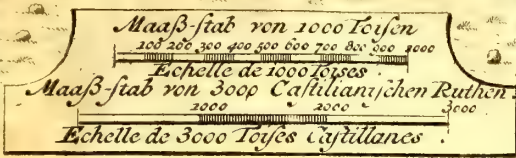 Maaß-stab von 1000 Toisen
100 200 300 400 500 600 700 800 900 1000
Echelle de 1000 Toises.
Maaß-stab von 3000 Castilianischen Ruthen
1000 2000 3000
Echelle de 3000 Toises Castillanes.